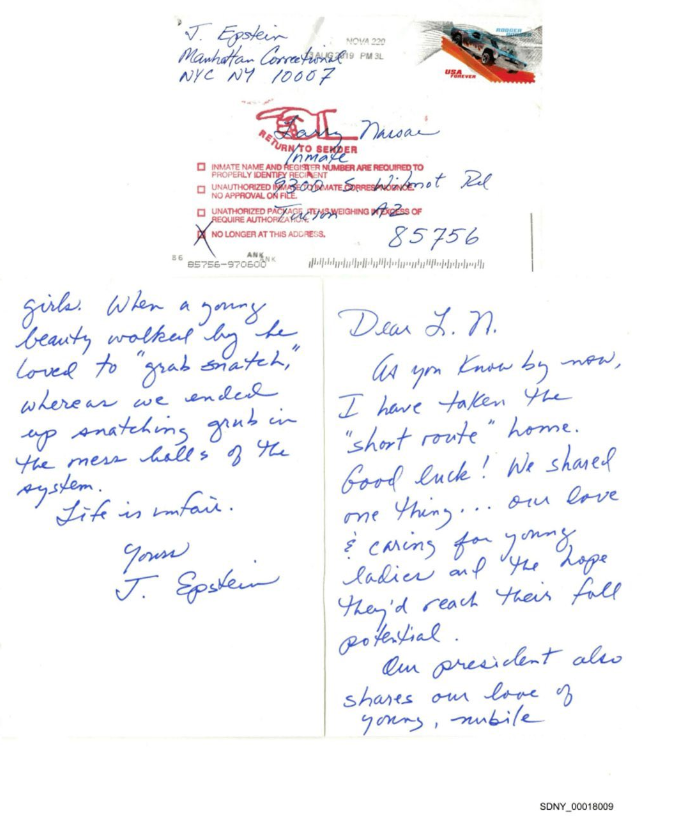 J. Epstein
Manhattan Correctional
NYC NY 10007
NOVA 220
AUG 2019 PM 3 L
RUBBER
BURNER
USA
FOREVER
Larry Nassar
RETURN TO SENDER
Inmate
INMATE NAME AND REGISTER NUMBER ARE REQUIRED TO
PROPERLY IDENTIFY RECIPIENT
9300 S. Wilmot Rd
UNAUTHORIZED INMATE TO INMATE CORRESPONDENCE.
NO APPROVAL ON FILE.
Tucson AZ
UNATHORIZED PACKAGE ITEMS WEIGHING IN EXCESS OF
REQUIRE AUTHORIZATION.
NO LONGER AT THIS ADDRESS.
85756
ANK
ANK
85756-970600
Dear L. N.
As you know by now,
I have taken the
"short route" home.
Good luck! We shared
one thing... our love
& caring for young
ladies and the hope
they'd reach their full
potential.
Our president also
shares our love of
young, nubile
girls. When a young
beauty walked by he
loved to "grab snatch,"
whereas we ended
up snatching grub in
the mess halls of the
system.
Life is unfair.
Yours
J. Epstein
SDNY_00018009